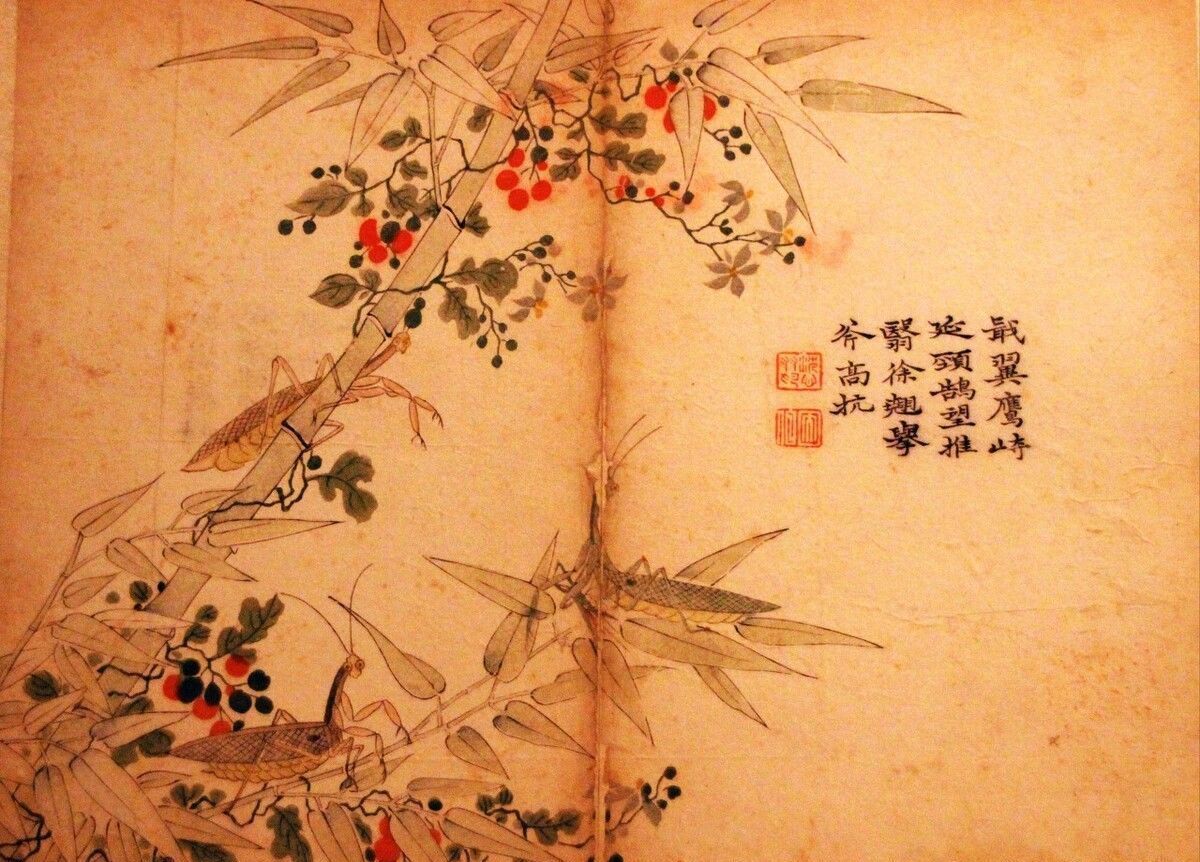 戢翼鷹峙
延頸鵠望推
翳徐翹舉
斧高抗